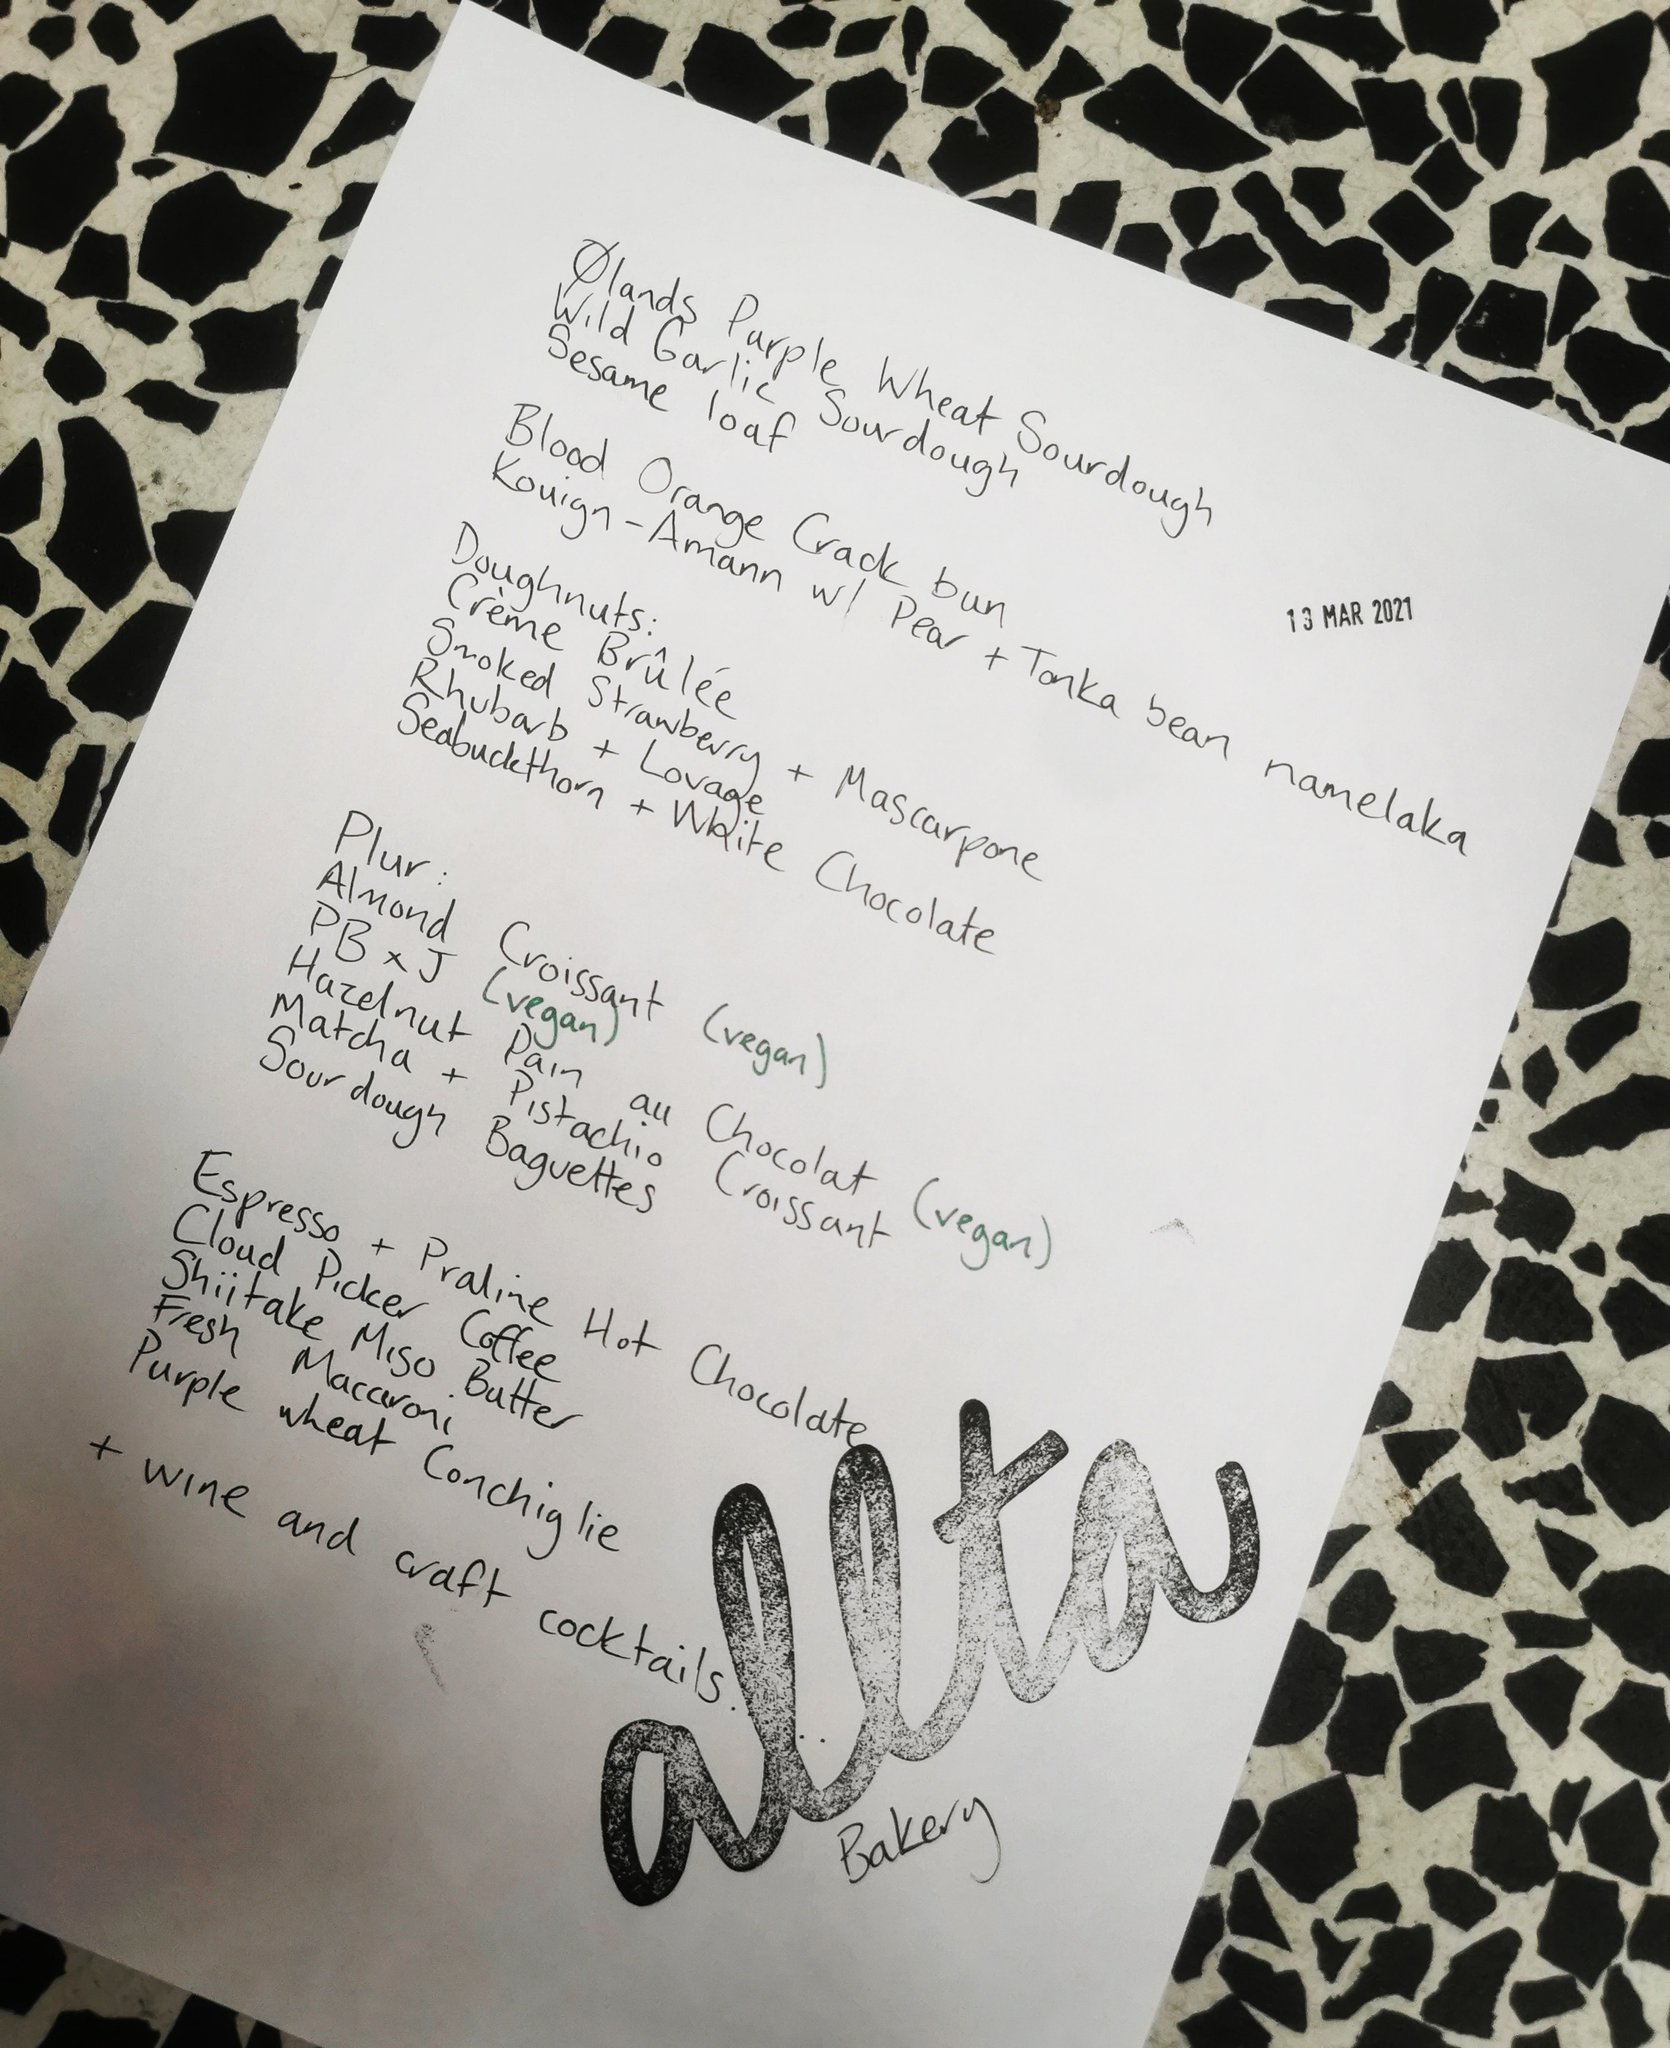 Ølands Purple Wheat Sourdough
Wild Garlic Sourdough
Sesame loaf
Blood Orange Crack bun
Kouign-Amann w/ Pear + Tonka bean namelaka
13 MAR 2021
Doughnuts:
Crème Brûlée
Smoked Strawberry + Mascarpone
Rhubarb + Lovage
Seabuckthorn + White Chocolate
Plur:
Almond Croissant (vegan)
PB x J (vegan)
Hazelnut Pain au Chocolat (vegan)
Matcha + Pistachio Croissant
Sourdough Baguettes
Espresso + Praline Hot Chocolate
Cloud Picker Coffee
Shiitake Miso Butter
Fresh Maccaroni
Purple wheat Conchiglie
+ wine and craft cocktails....
allta
Bakery